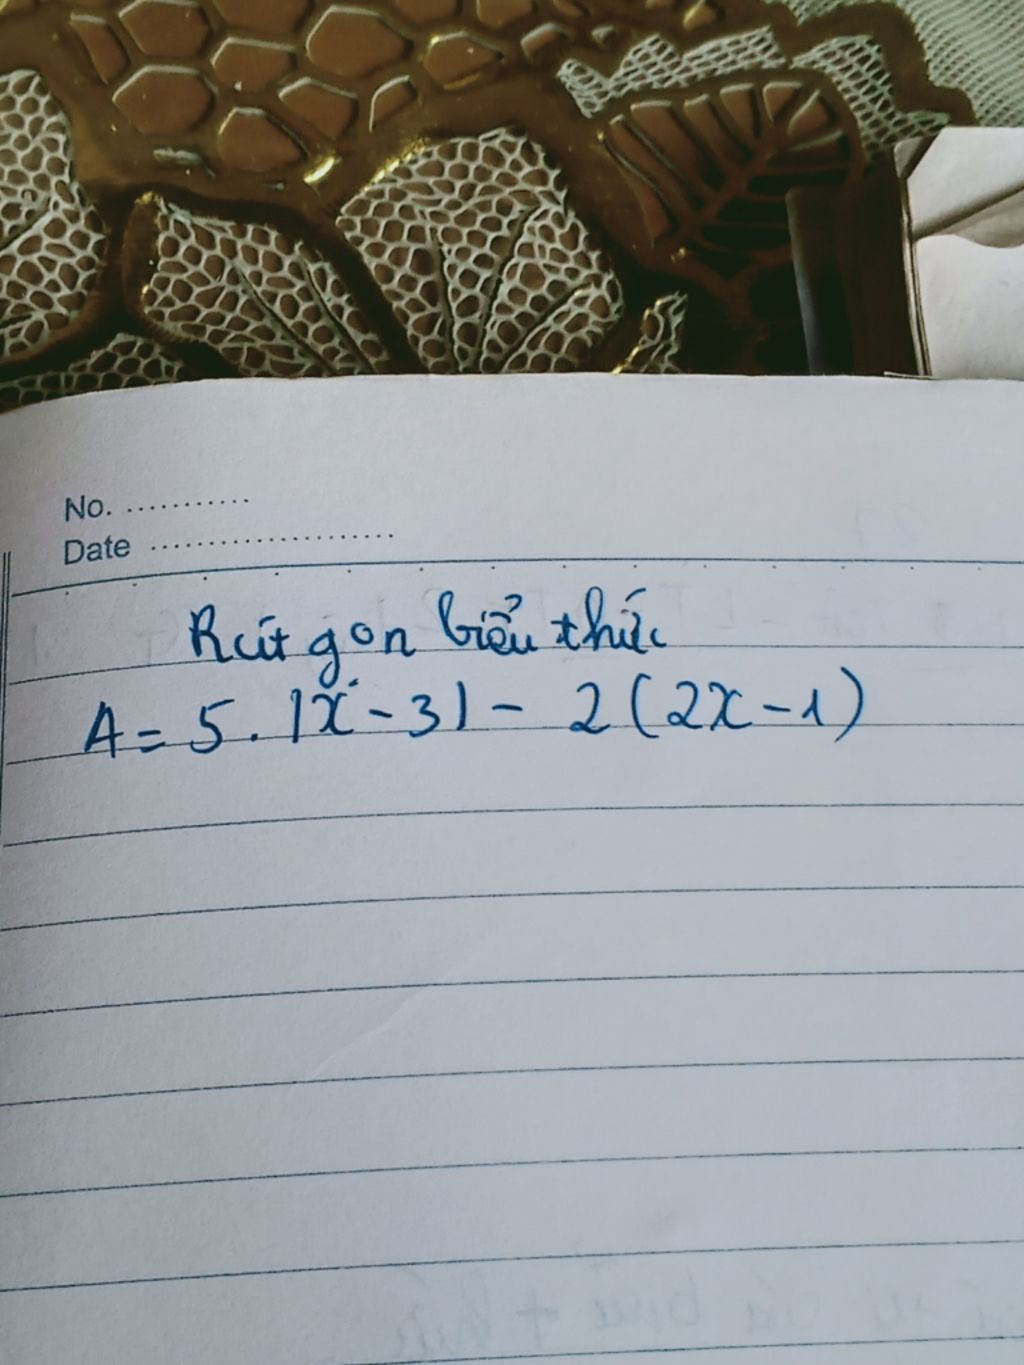 No. ...........
Date .....................
Rút gọn biểu thức
A = 5 . |x - 3| - 2 ( 2x - 1 )